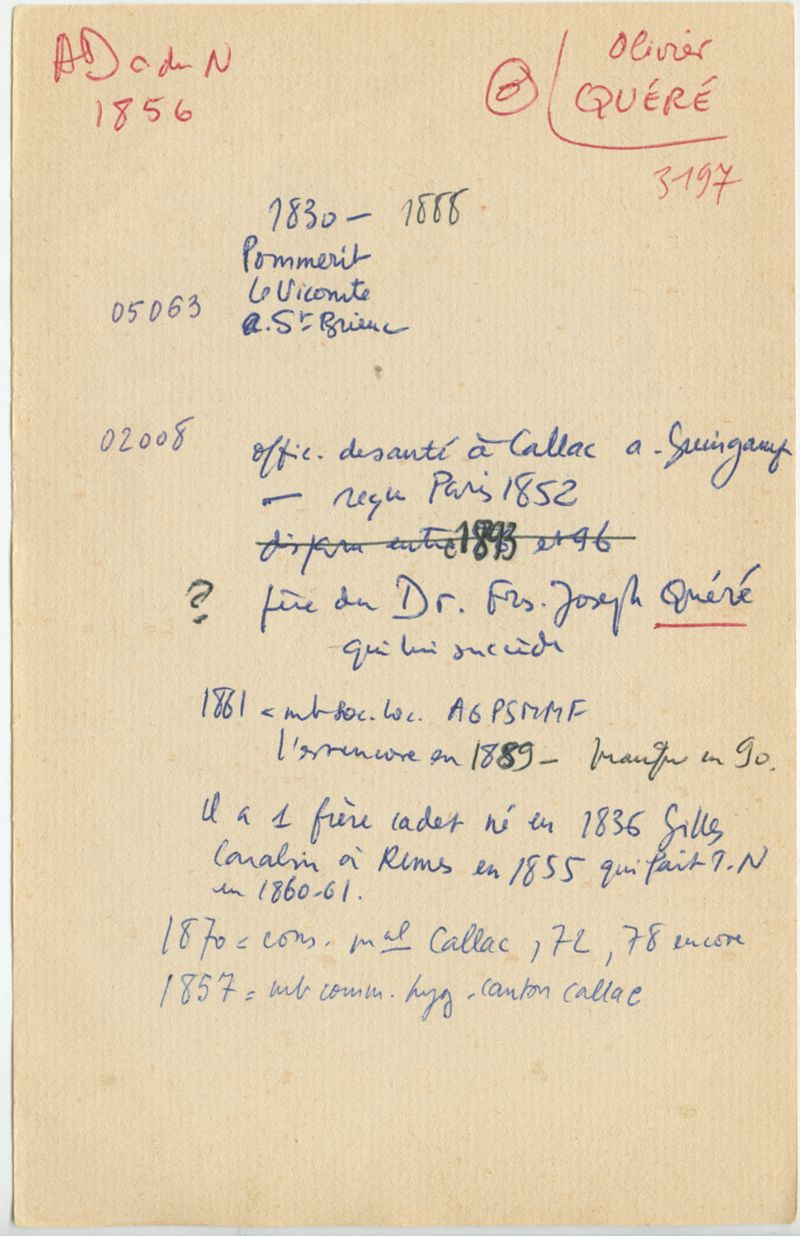 AD c du N
1856
Olivier
QUÉRÉ
3197
1830 – 1888
Pommerit
le Vicomte
05063
a. St Brieuc
02008
offic. de santé à Callac a. Guingamp
— reçu Paris 1852
disparu entre 1893 et 96
? père du Dr. Frs. Joseph Quéré
qui lui succède
1861 = mb soc. loc. AGPSMMF
l'est encore en 1889 – manque en 90.
il a 1 frère cadet né en 1836 Gilles
à Rennes en 1855 qui fait T.N
en 1860-61.
1870 = cons. mal Callac, 72, 78 encore
1857 = mb comm. hyg. canton Callac